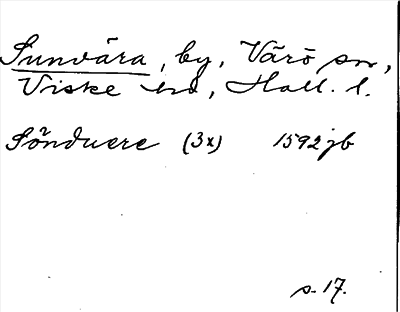 Sunvära, by, Värö sn,
Viske hd, Hall. l.
Sönduere (3x) 1592 jb
s. 17.